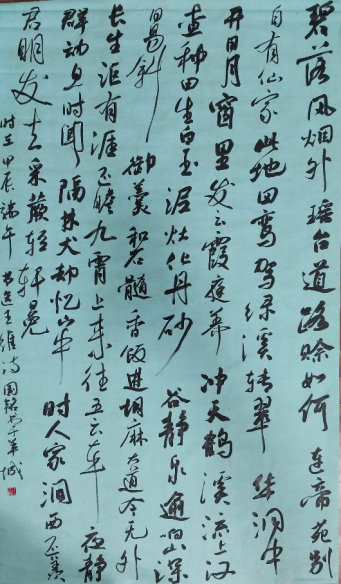 碧落风烟外瑶台道路赊如何连帝苑别
自有仙家此地回鸾驾缘溪转翠华洞中
开日月窗里发云霞庭养冲天鹤溪流上汉
查种田生白玉泥灶化丹砂谷静泉逾响山深
日易斜御羹和石髓香饭进胡麻大道今无外
长生讵有涯还瞻九霄上来往五云车夜静
群动息时闻隔林犬却忆山中时人家涧西远羡
君明发去采蕨轻轩冕
时在甲辰端午书王维诗国铭城